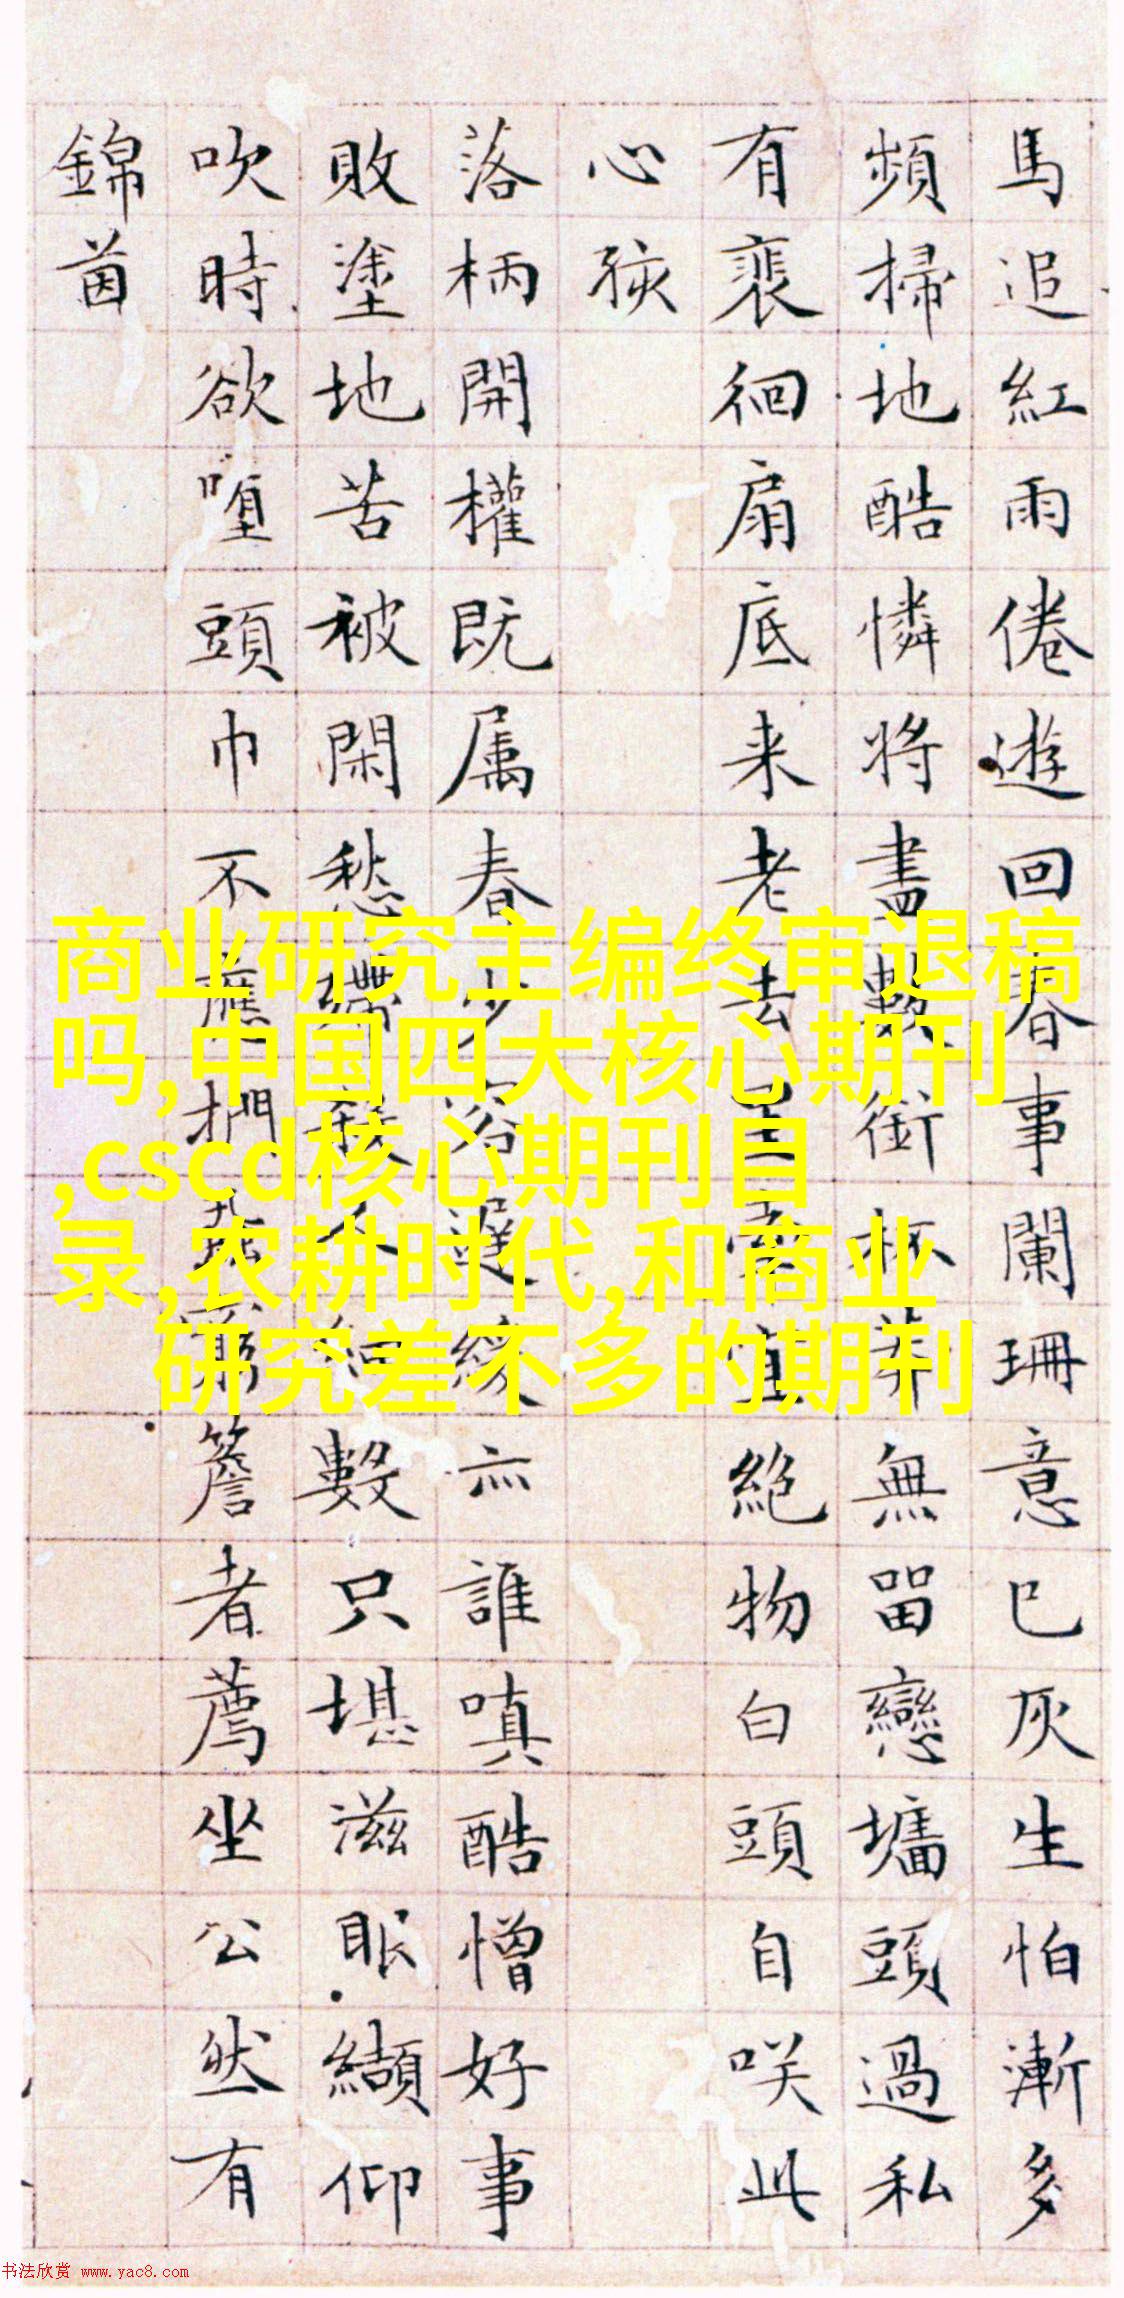 馬追紅雨倦遊回春事闌珊意已灰生怕漸多
頻掃地酷憐將盡數銜杯無留戀墻頭過私
有裴徊扇底来老去星星宜絶物白頭自咲此
心孩
落柄開權既属春少遲緩亦誰嗔酷憎好事
敗塗地苦被閑愁殺人細數只堪滋眼纈仰
吹時欲墮頭巾不應捫虱窮簷者薦坐公然有
錦茵
商业研究主编终审退稿
吗,中国四大核心期刊
,cscd核心期刊目
录,农耕时代,和商业
研究差不多的期刊
书法欣赏 www.yac8.com